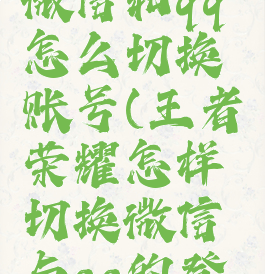 微信和qq
怎么切换
账号(王者
荣耀怎样
切换微信
与qq的登